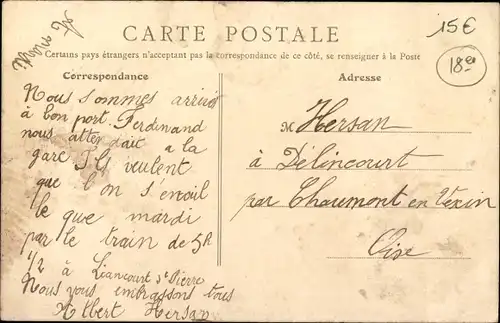 CARTE POSTALE
15€
18ea
Certains pays étrangers n'acceptant pas la correspondance de ce côté, se renseigner à la Poste
Correspondance
Nous sommes arrivés
à bon port. Ferdinand
nous attendait a la
gare Ils veulent
que l'on s'envoil
le que mardi
par le train de 5h
1/2 à Liancourt St Pierre
Nous vous embrassons tous
Albert Hersan
Adresse
M Hersan
à Délincourt
par Chaumont en Vexin
Oise